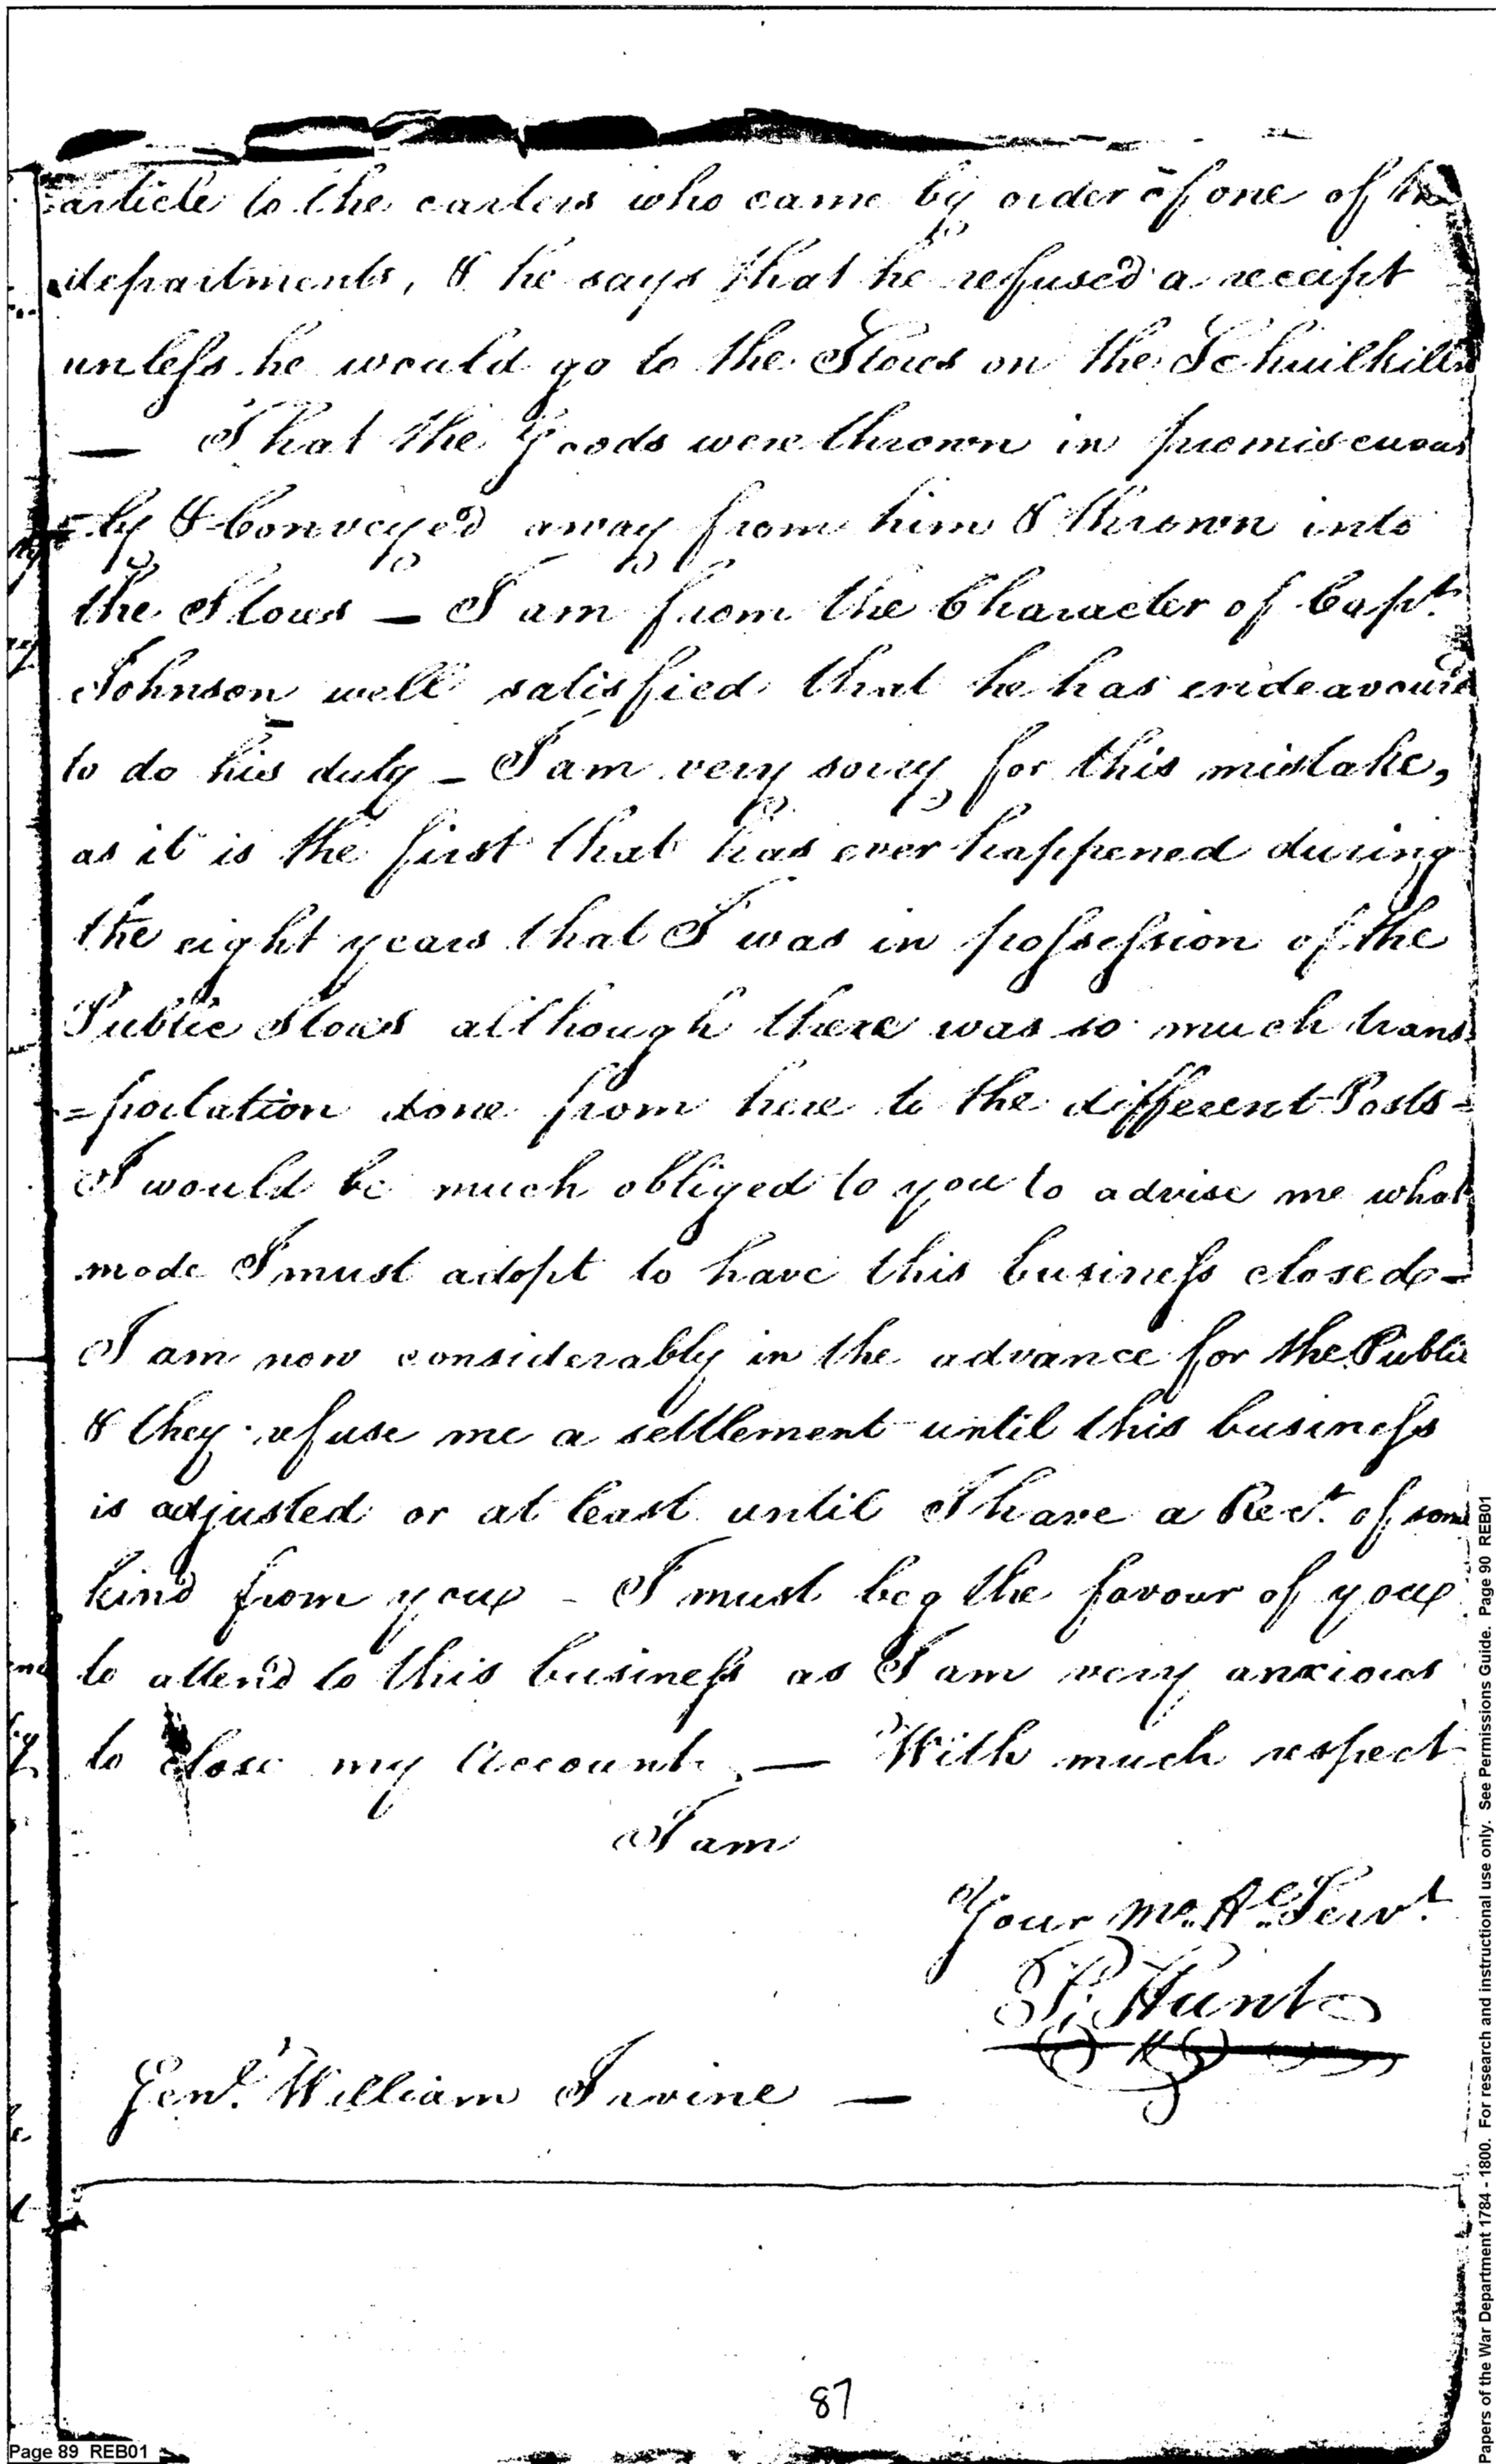 article to the carters who came by order of one of the
departments, & he says that he refused a receipt
unless he would go to the Stores on the Schuilkill
— That the Goods were thrown in promiscuous
=ly & Conveyed away from him & thrown into
the Stores — I am from the Character of Capt.
Johnson well satisfied that he has endeavoured
to do his duty — I am very sorry for this mistake,
as it is the first that has ever happened during
the eight years that I was in possession of the
Public Stores although there was so much trans
=portation done from here to the different Posts =
I would be much obliged to you to advise me what
mode I must adopt to have this business closed —
I am now considerably in the advance for the Public
& they refuse me a settlement until this business
is adjusted or at least until I have a Rect. of some
kind from you — I must beg the favour of you
to attend to this business as I am very anxious
to close my Account. — With much respect
I am
Your Mo. He. Servt.
Hunt
Genl. William Irvine —
87
Page 89 REB01
Papers of the War Department 1784 - 1800. For research and instructional use only. See Permissions Guide. Page 90 REB01